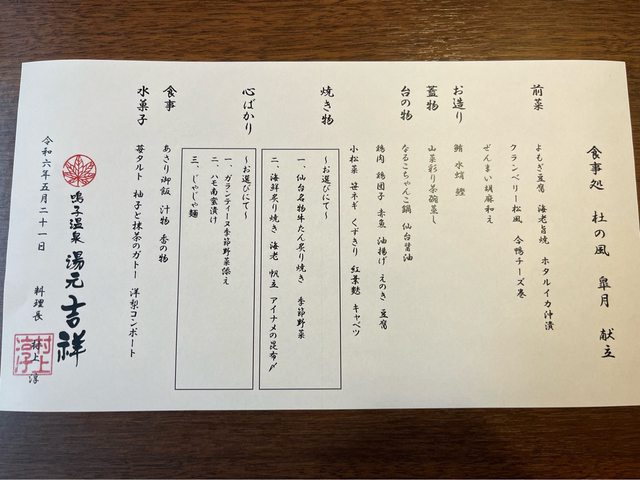 食事処 杜の風 皐月 献立
前菜
よもぎ豆腐 海老旨焼 ホタルイカ沖漬
クランベリー松風 合鴨チーズ巻
ぜんまい胡麻和え
お造り
鮪 水蛸 鰹
蓋物
山菜彩り茶碗蒸し
台の物
なるこちゃんこ鍋 仙台醤油
鶏肉 鶏団子 赤魚 油揚げ えのき 豆腐
小松菜 笹ネギ くずきり 紅葉麩 キャベツ
焼き物
~お選びにて~
一、仙台名物牛たん炙り焼き 季節野菜
二、海鮮炙り焼き 海老 帆立 アイナメの昆布〆
心ばかり
~お選びにて~
一、ガランティーヌ季節野菜添え
二、ハモ南蛮漬け
三、じゃじゃ麺
食事
あさり御飯 汁物 香の物
水菓子
苺タルト 柚子と抹茶のガトー 洋梨コンポート
令和六年五月二十一日
鳴子温泉 湯元 吉祥
料理長 村上 淳